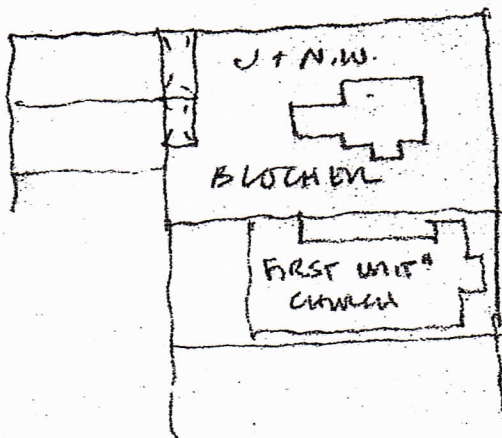 J + N.W.
BLOCHER
FIRST UNIT^n
CHURCH